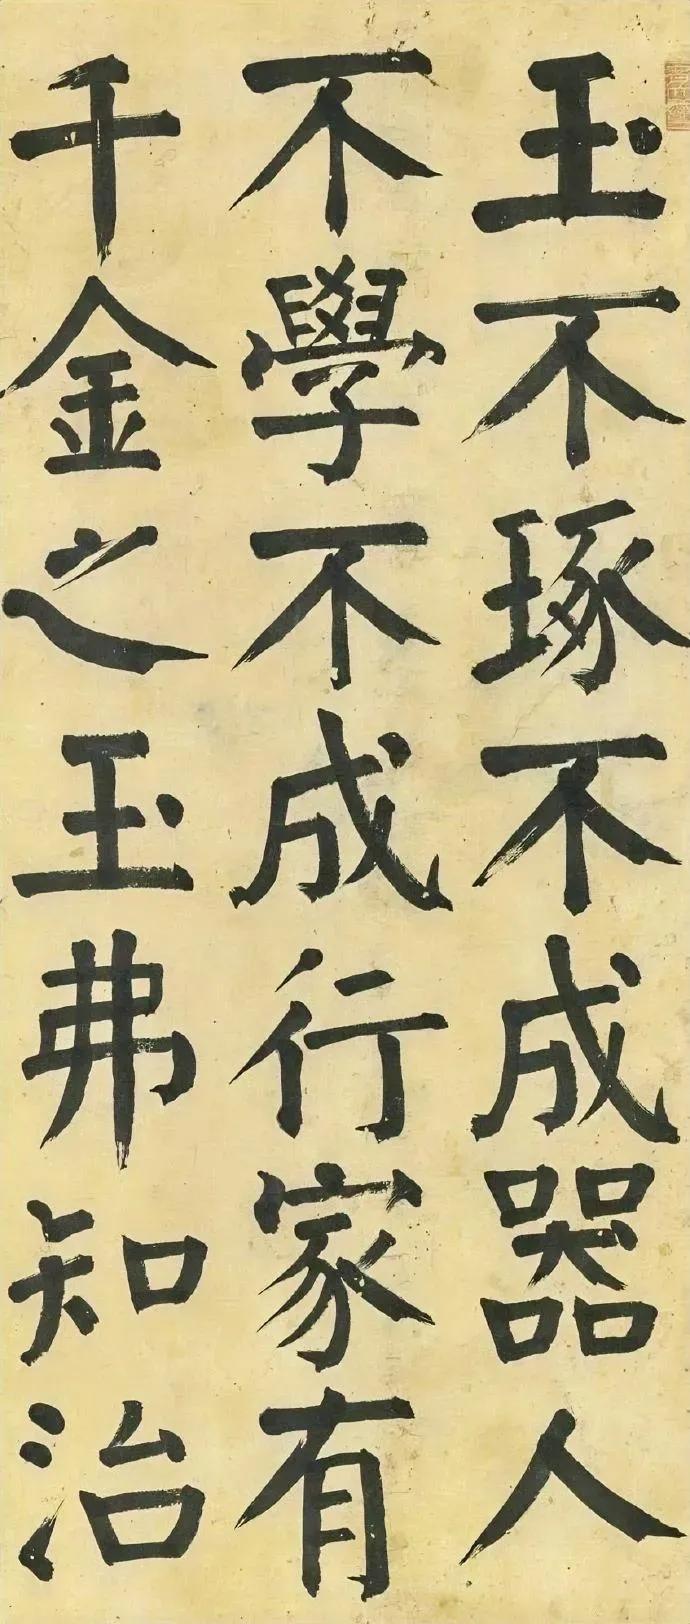 玉不琢不成器人
不學不成行家有
千金之玉弗知治